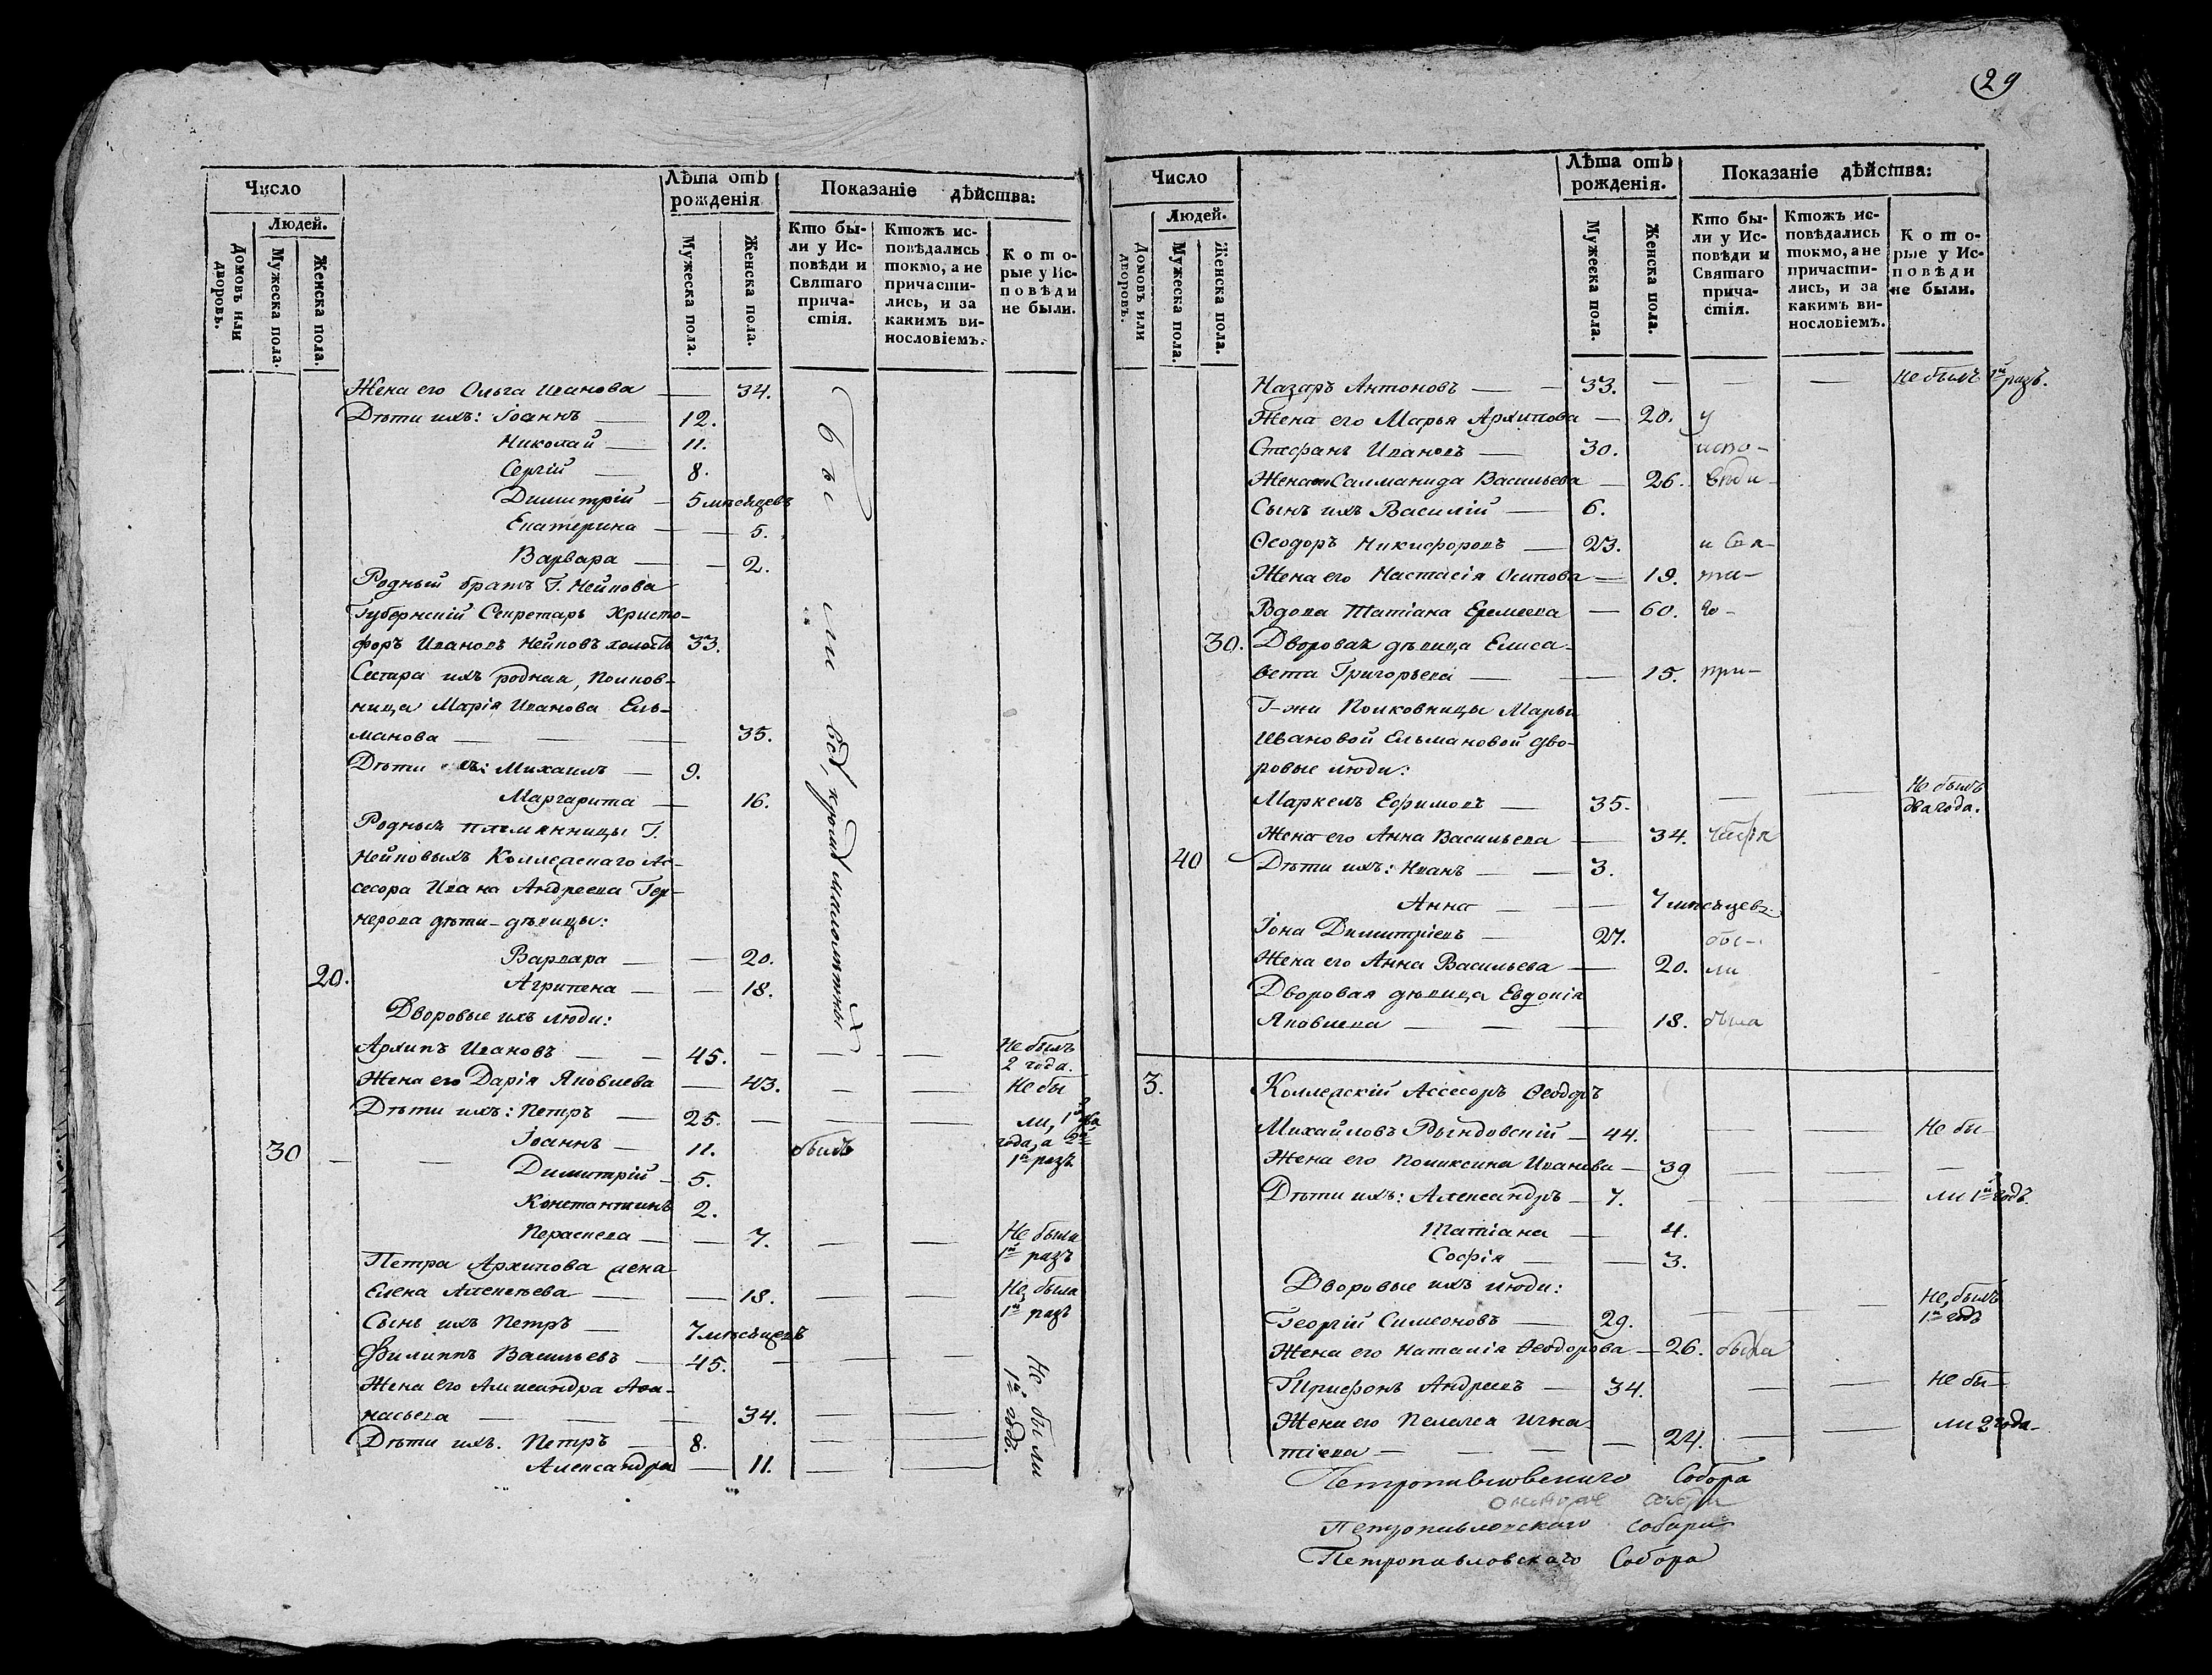 29
Число
Людей.
Домовъ или дворовъ.
Мужеска пола.
Женска пола.
Лѣта отъ рожденія
Мужеска пола.
Женска пола.
Показаніе дѣйства:
Кто были у Исповѣди и Святаго причастія.
Ктожъ исповѣдались токмо, а не причастились, и за какимъ винословіемъ.
Которые у Исповѣди не были.
Жена его Ольга Иванова — 34.
Дѣти ихъ: Іоаннъ — 12.
Николай — 11.
Сергій — 8.
Димитрій — 5 мѣсяцевъ
Екатерина — — 5.
Варвара — — 2.
Родный братъ Г. Нейкова
Губернскій Секретарь Христо-
форъ Ивановъ Нейковъ холостъ 33.
Сестра ихъ родная, Полков-
ница Марія Иванова Ель-
манова — — — 35.
Дѣти ея: Михаилъ — 9.
Маргарита — 16.
Родныя племянницы Г.
Нейковыхъ Коллежскаго Ас-
сесора Ивана Андреева Гер-
нерова дѣти-дѣвицы:
Варвара — — 20.
20. Агрипена — — 18.
были всѣ, кромѣ малолѣтныхъ
Дворовые ихъ люди:
Архипъ Ивановъ — — 45. — — — Не былъ 2 года.
Жена его Дарія Яковлева — 43. — — Не бы
Дѣти ихъ: Петръ — 25. — — — ли, 1й два
Іоаннъ — 11. былъ года, а 2й
30 — — Димитрій — 5. 1й разъ
Константинъ 2.
Параскева — — 7. — — Не была 1й разъ
Петра Архипова жена
Елена Алексѣева — — 18. — — Не была 1й разъ
Сынъ ихъ Петръ — 7 мѣсяцевъ
Филиппъ Васильевъ — 45. — — —
Жена его Александра Афа-
насьева — — — 34. — —
Дѣти ихъ. Петръ — 8. — —
Александра — 11. — —
Не были 1й годъ.
Число
Людей.
Домовъ или дворовъ.
Мужеска пола.
Женска пола.
Лѣта отъ рожденія.
Мужеска пола.
Женска пола.
Показаніе дѣйства:
Кто были у Исповѣди и Святаго причастія.
Ктожъ исповѣдались токмо, а не причастились, и за какимъ винословіемъ.
Которые у Исповѣди не были.
Назаръ Антоновъ — — 33. — — — Не былъ 1й разъ.
Жена его Марья Архипова — 20. у
Стефанъ Ивановъ — 30. испо-
Жена его Саламанида Васильева — 26. вѣди
Сынъ ихъ Василій — 6.
Ѳеодоръ Никифоровъ — 23. и Свя-
Жена его Настасія Осипова — 19. та-
Вдова Татіана Еремеева — 60. го-
30. Дворовая дѣвица Елиса-
вета Григорьева — — 15. при-
Г-жи Полковницы Марьи
Ивановой Ельмановой дво-
ровые люди:
Маркелъ Ефимовъ — 35. — — Не былъ два года.
Жена его Анна Васильева — 34. частія
40 Дѣти ихъ: Иванъ — — 3.
Анна — — 7 мѣсяцевъ
Іона Димитріевъ — 27. бы-
Жена его Анна Васильева — 20. ли
Дворовая дѣвица Евдокія
Яковлева — — — 18. была
3. Коллежскій Ассесоръ Ѳеодоръ
Михайловъ Рындовскій — 44. — — Не бы-
Жена его Поликсина Иванова — 39 — — —
Дѣти ихъ: Александръ — 7. — — ли 1й годъ.
Татіана — 4.
Софія — — 3.
Дворовые ихъ люди:
Георгій Симеоновъ — 29. — — Не былъ 1й годъ
Жена его Наталія Ѳеодорова — 26. была
Трифонъ Андреевъ — 34. — — Не бы-
Жена его Пелагея Игна-
тіева — — — — 24. — — ли 2 года.
Петропавловскаго Собора
Петропавловскаго Собора
Петропавловскаго Собора